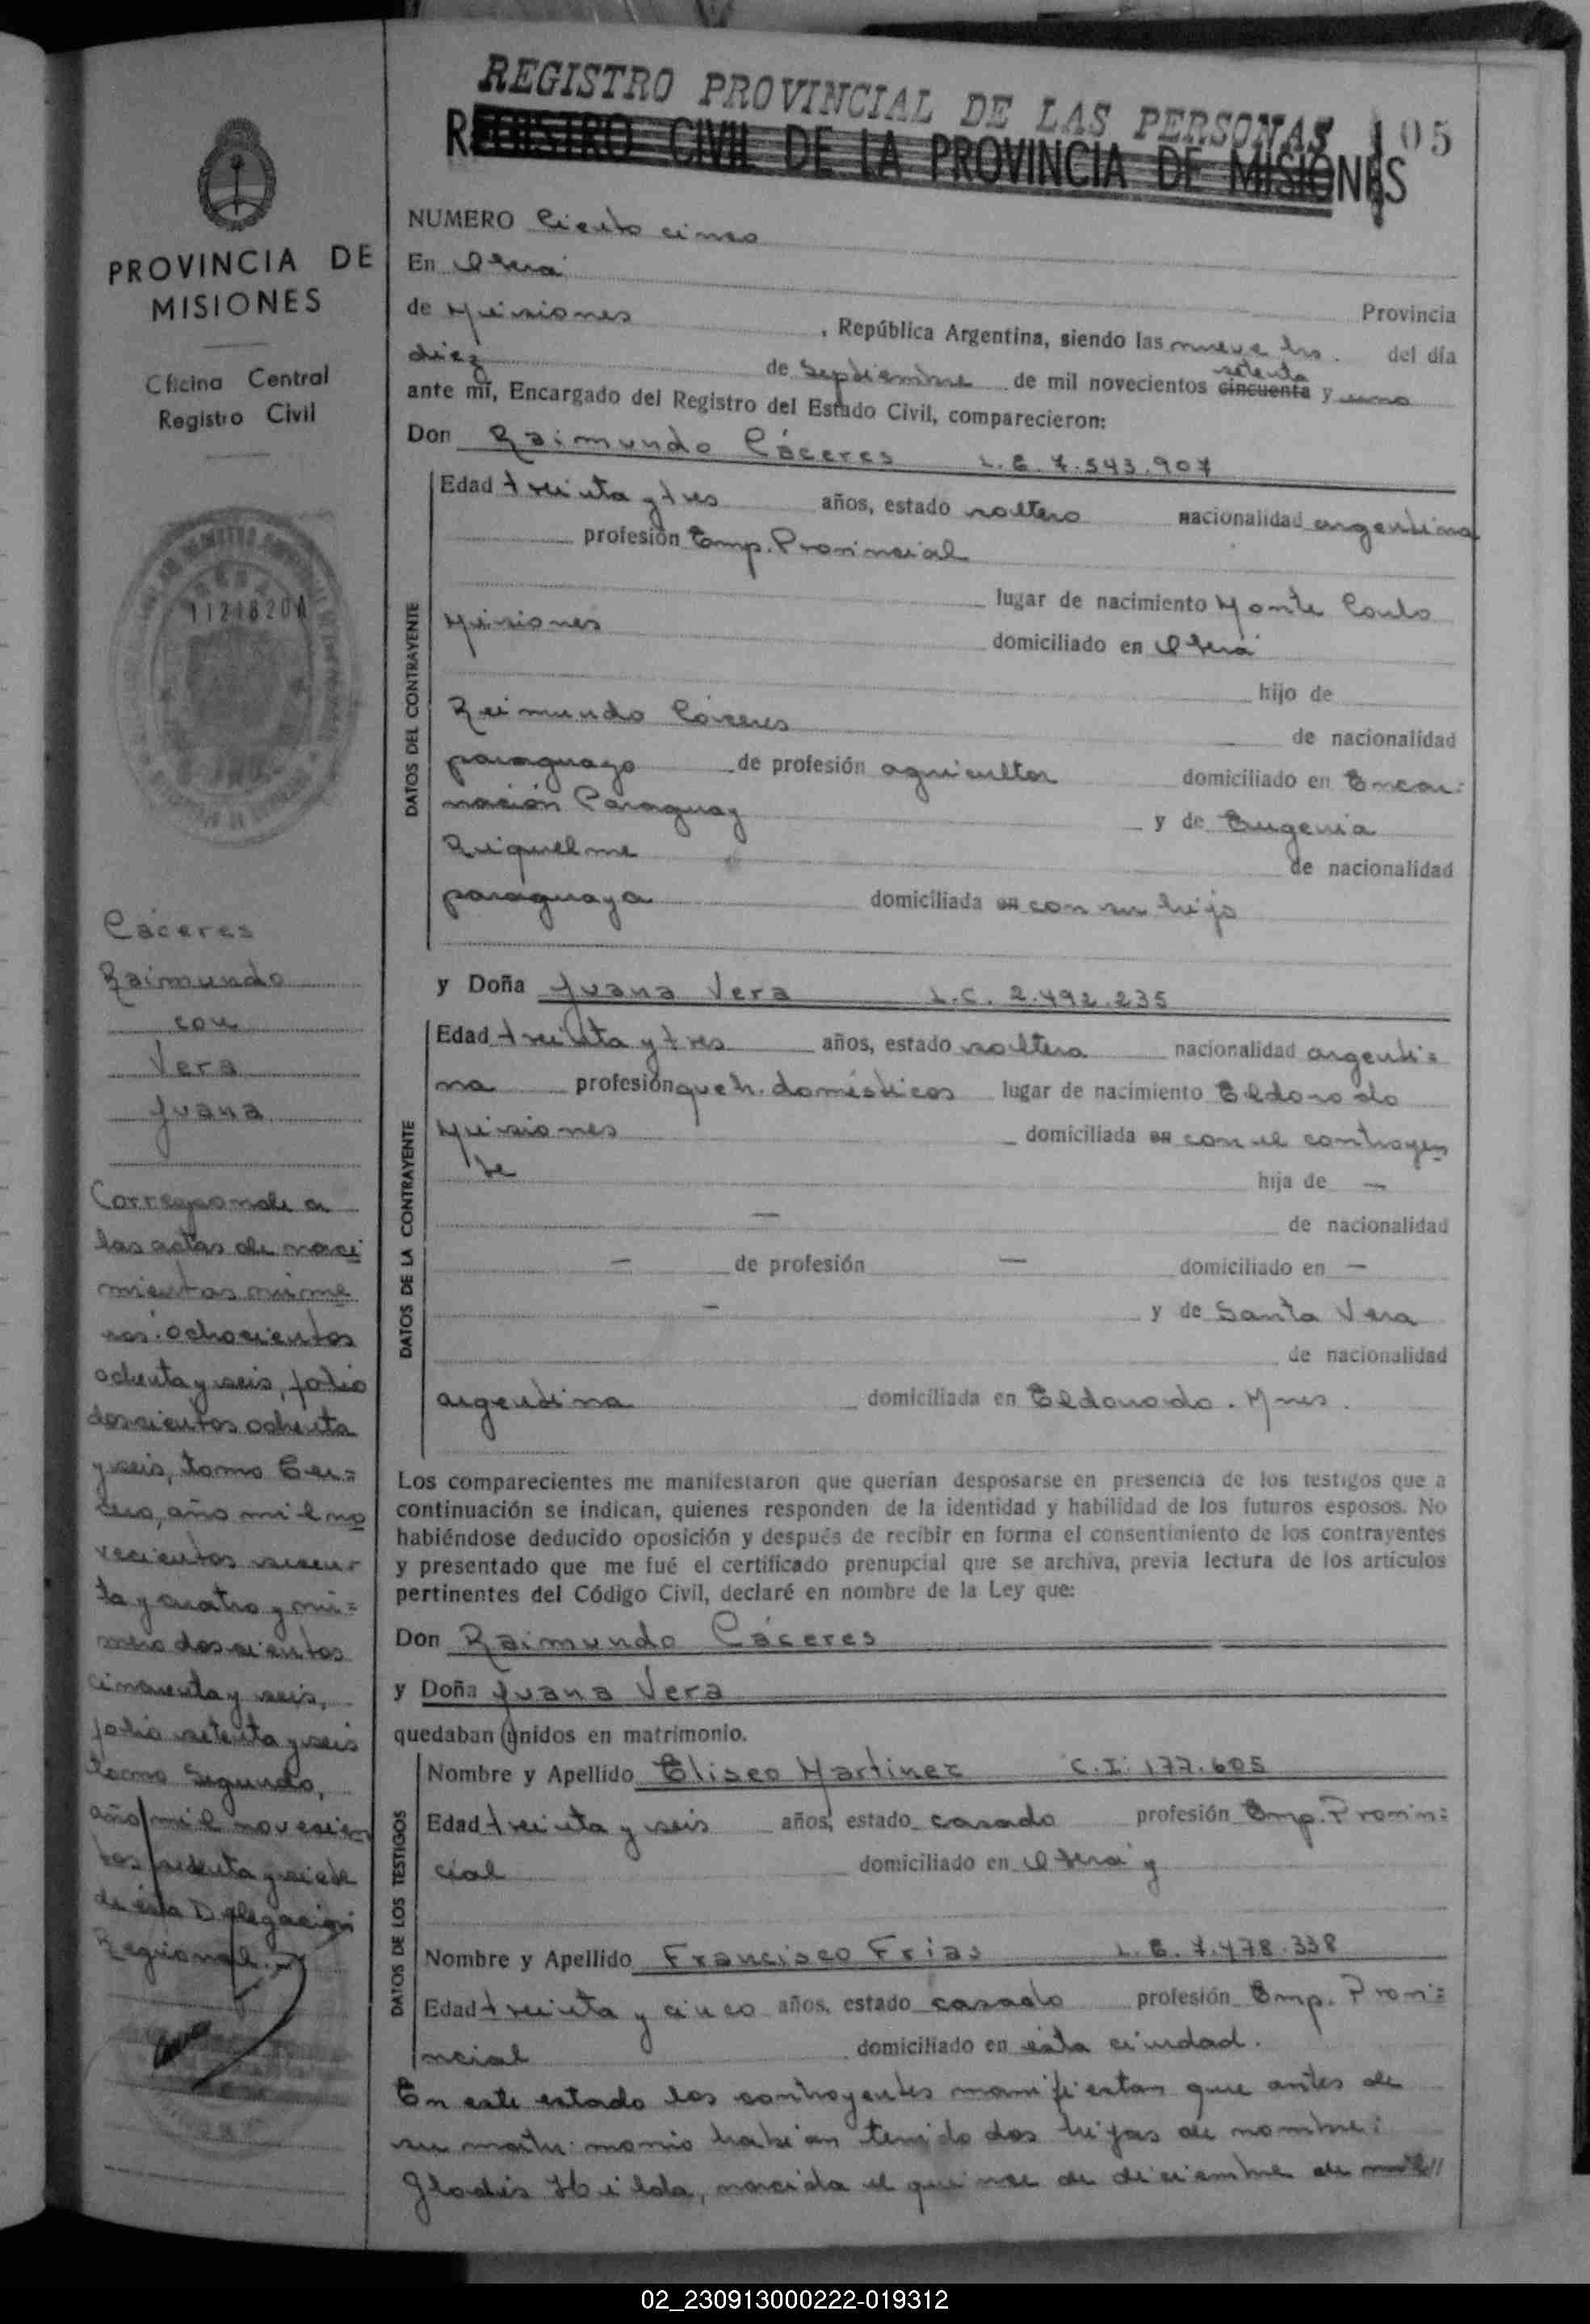 REGISTRO PROVINCIAL DE LAS PERSONAS
105
REGISTRO CIVIL DE LA PROVINCIA DE MISIONES
PROVINCIA DE
MISIONES
Oficina Central
Registro Civil
1121820A
Cáceres
Raimundo
con
Vera
Juana
Corresponde a
las actas de naci
mientos núme
ros: ochocientos
ochenta y seis, folio
doscientos ochenta
y seis, tomo Ter=
cero, año mil no
vecientos sesen-
ta y cuatro y nú=
mero doscientos
cincuenta y seis,
folio setenta y seis
tomo Segundo,
año mil novecien
tos sesenta y siete
de ésta Delegación
Regional.-
NUMERO Ciento cinco
En Oberá
Provincia
de Misiones , República Argentina, siendo las nueve hs. del día
diez de Septiembre de mil novecientos cincuenta setenta y uno
ante mí, Encargado del Registro del Estado Civil, comparecieron:
Don Raimundo Cáceres L.E. 7.543.907
DATOS DEL CONTRAYENTE
Edad treinta y tres años, estado soltero nacionalidad argentina
profesión Emp. Provincial
lugar de nacimiento Monte Carlo
Misiones domiciliado en Oberá
hijo de
Reimundo Cáceres de nacionalidad
paraguayo de profesión agricultor domiciliado en Encar=
nación Paraguay y de Eugenia
Riquelme de nacionalidad
paraguaya domiciliada en con su hijo
y Doña Juana Vera L.C. 2.492.235
DATOS DE LA CONTRAYENTE
Edad treinta y tres años, estado soltera nacionalidad argenti=
na profesión queh. domésticos lugar de nacimiento Eldorado
Misiones domiciliada en con el contrayen
te hija de —
— de nacionalidad
— de profesión — domiciliado en —
— y de Santa Vera
de nacionalidad
argentina domiciliada en Eldorado. Mnes.
Los comparecientes me manifestaron que querían desposarse en presencia de los testigos que a
continuación se indican, quienes responden de la identidad y habilidad de los futuros esposos. No
habiéndose deducido oposición y después de recibir en forma el consentimiento de los contrayentes
y presentado que me fué el certificado prenupcial que se archiva, previa lectura de los artículos
pertinentes del Código Civil, declaré en nombre de la Ley que:
Don Raimundo Cáceres
y Doña Juana Vera
quedaban unidos en matrimonio.
DATOS DE LOS TESTIGOS
Nombre y Apellido Eliseo Martinez C.I. 177.605
Edad treinta y seis años, estado casado profesión Emp. Provin=
cial domiciliado en Oberá y
Nombre y Apellido Francisco Frias L.E. 7.478.338
Edad treinta y cinco años, estado casado profesión Emp. Provi=
ncial domiciliado en ésta ciudad.
En este estado los contrayentes manifiestan que antes de
su matrimonio habían tenido dos hijas de nombre:
Gladis Hilda, nacida el quince de diciembre de mil//
02_230913000222-019312